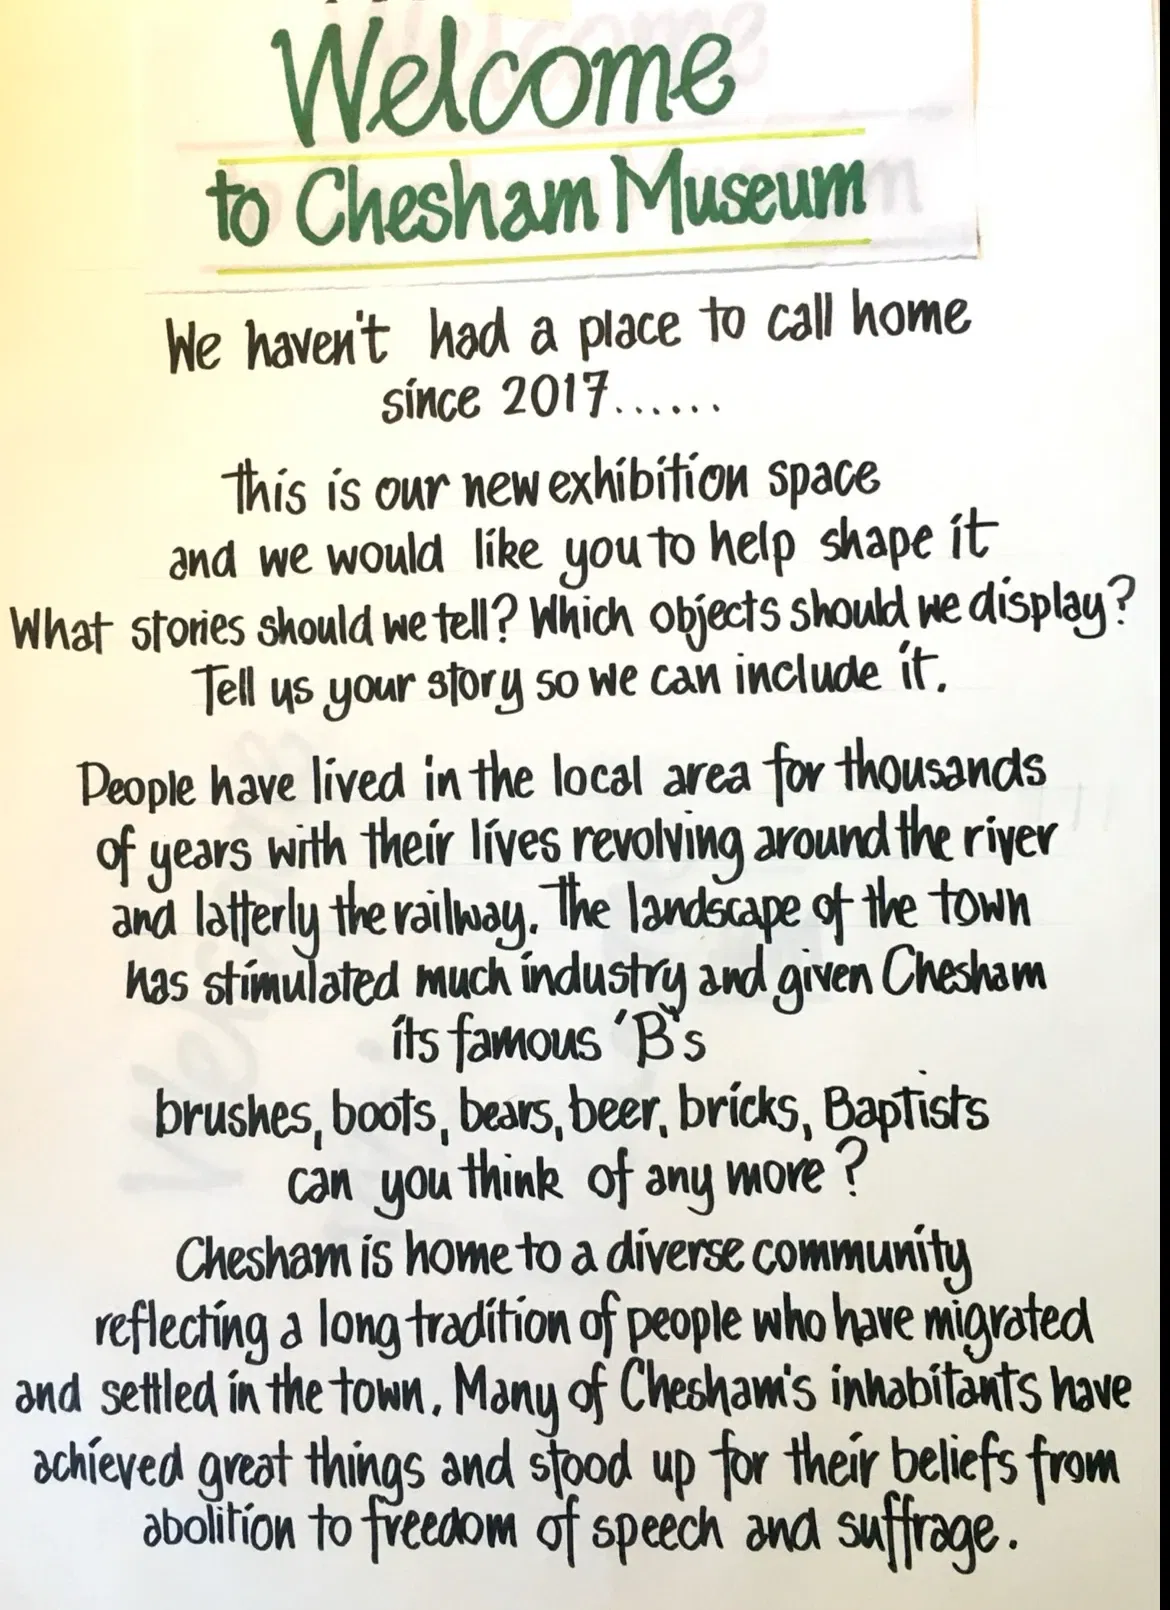 Welcome
to Chesham Museum
We haven't had a place to call home
since 2017......
This is our new exhibition space
and we would like you to help shape it
What stories should we tell? Which objects should we display?
Tell us your story so we can include it.
People have lived in the local area for thousands
of years with their lives revolving around the river
and latterly the railway. The landscape of the town
has stimulated much industry and given Chesham
its famous 'B's
brushes, boots, bears, beer, bricks, Baptists
can you think of any more?
Chesham is home to a diverse community
reflecting a long tradition of people who have migrated
and settled in the town. Many of Chesham's inhabitants have
achieved great things and stood up for their beliefs from
abolition to freedom of speech and suffrage.